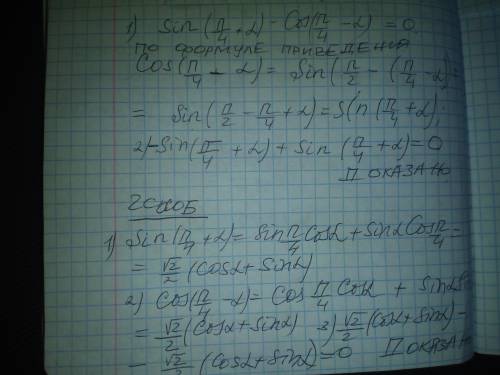 1) Sin(π/4+α) - Cos(π/4-α) = 0
ПО ФОРМУЛЕ ПРИВЕДЕНИЯ
Cos(π/4 - α) = Sin(π/2 - (π/4-α) =
= Sin(π/2 - π/4 + α) = Sin(π/4+α);
2) -Sin(π/4 + α) + Sin(π/4+α) = 0
ДОКАЗАНО
2 СПОСОБ
1) Sin(π/4+α) = Sin π/4 Cosα + Sinα Cos π/4 =
= √2/2 (Cosα + Sinα)
2) Cos(π/4 - α) = Cos π/4 Cosα + Sinα
= √2/2 (Cosα + Sinα) 3) √2/2 (Cosα + Sinα) -
- √2/2 (Cosα + Sinα) = 0 ДОКАЗАНО